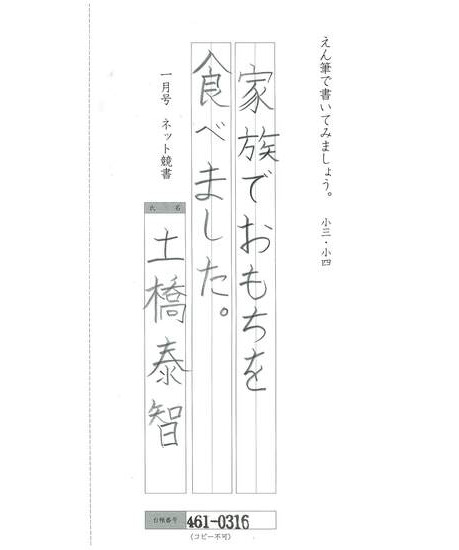 えん筆で書いてみましょう。 小三・小四
家族でおもちを
食べました。
一月号 ネット競書
氏 名
土橋泰智
台帳番号 461-0316
(コピー不可)